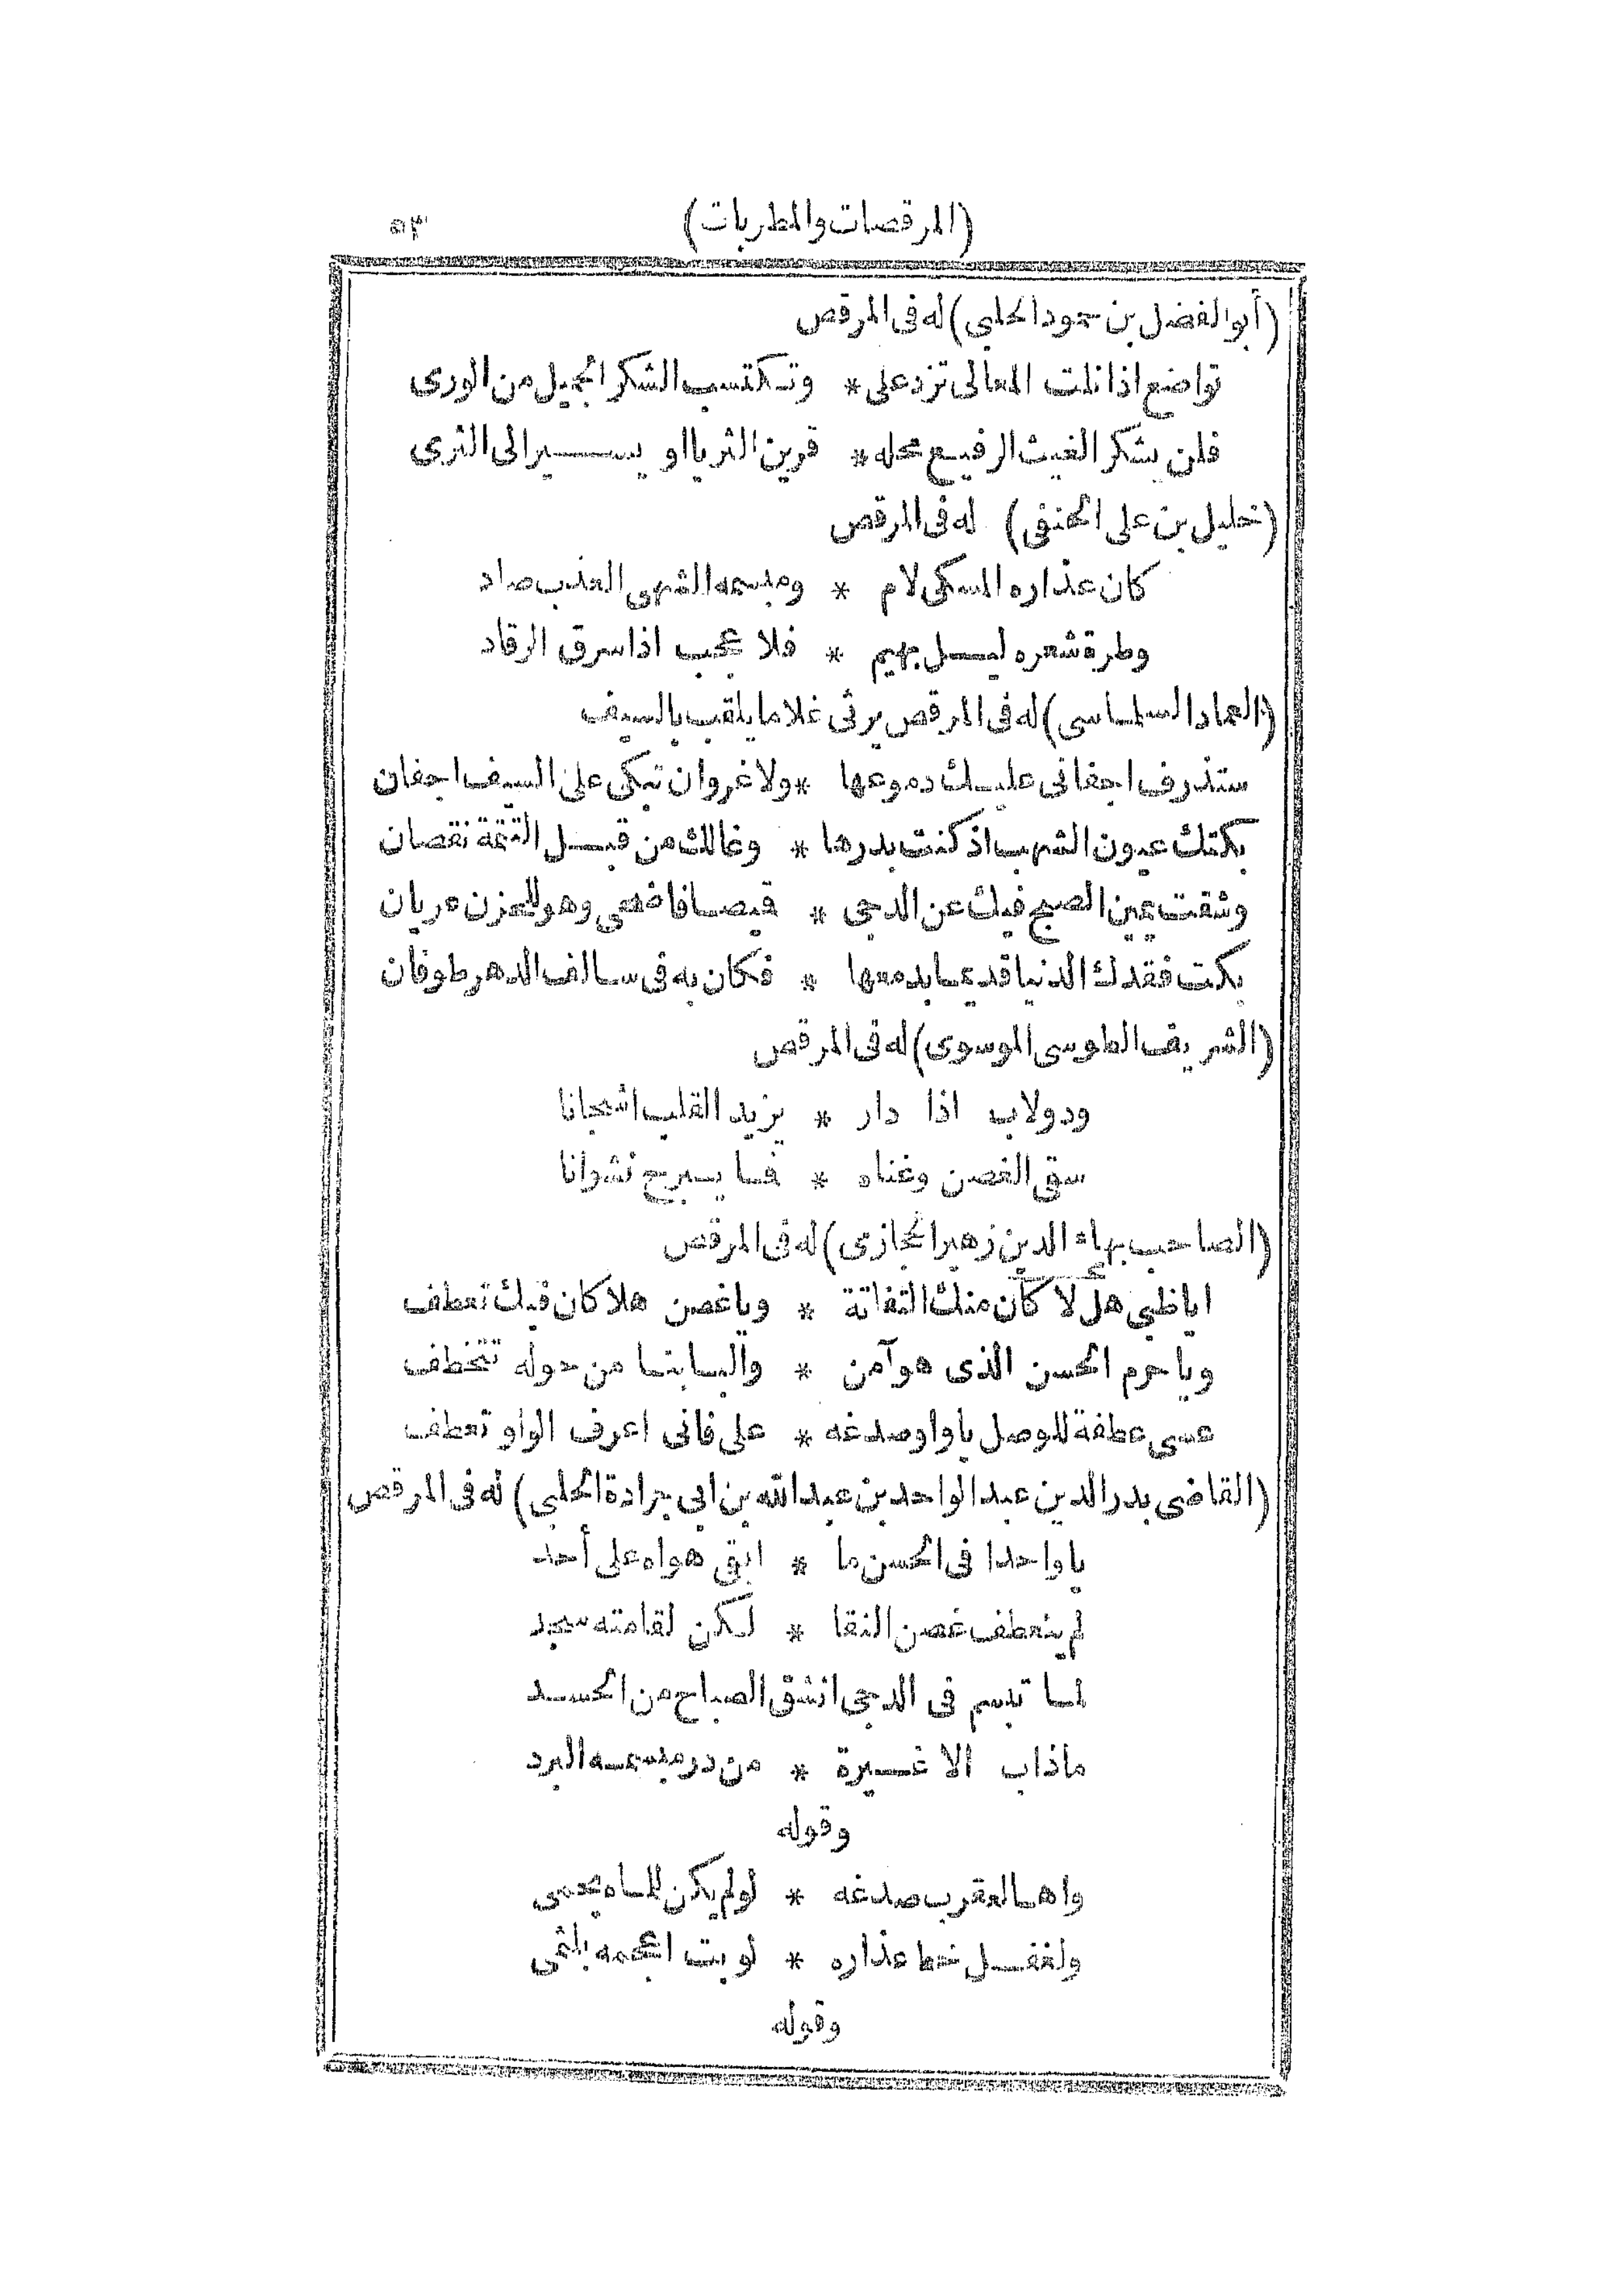 (المرقصات والمطربات) ٥٣
(أبو الفضل بن حمود الحلبي) له فى المرقص
تواضع اذا نلت المعالى تزد على * وتكتسب الشكر الجميل من الورى
فلن يشكر الغيث الرفيع محله * قرين الثريا او يسير الى الثرى
(خليل بن على الحنفى) له فى المرقص
كان عذاره المسكى لام * ومبسمه الشهى العذب صاد
وطرة شعره ليل بهيم * فلا عجب اذا سرق الرقاد
(العماد السلماسى) له فى المرقص يرثى غلاما يلقب بالسيف
ستذرف اجفانى عليك دموعها * ولا غروان تبكى على السيف اجفان
بكتك عيون الشهب اذ كنت بدرها * وغالك من قبل التتمة نقصان
وشقت يمين الصبح فيك عن الدجى * قيصا فاضحى وهو للحزن عريان
بكت فقدك الدنيا قديما بدمعها * فكان به فى سالف الدهر طوفان
(الشريف الطوسى الموسوى) له فى المرقص
ودولاب اذا دار * يزيد القلب اشجانا
سقى الغصن وغناه * فما يبرح نشوانا
(الصاحب بهاء الدين زهير الحجازى) له فى المرقص
ايا ظبي هل لا كان منك التفاتة * ويا غصن هلا كان فيك تعطف
ويا حرم الحسن الذى هو آمن * والبابنا من حوله تتخطف
عسى عطفة للوصل يا واو صدغه * على فانى اعرف الواو تعطف
(القاضى بدر الدين عبد الواحد بن عبد الله بن ابى جرادة الحلبي) له فى المرقص
يا واحدا فى الحسن ما * ابقى هواه على أحد
لم ينعطف غصن النقا * لكن لقامته سجد
لما تبسم فى الدجى انشق الصباح من الحسد
ماذاب الا غيرة * من در مبسمه البرد
وقوله
واها لعقرب صدغه * لو لم يكن للماه يحمى
ولغفل خط عذاره * لو بت اعجمه بلثمى
وقوله